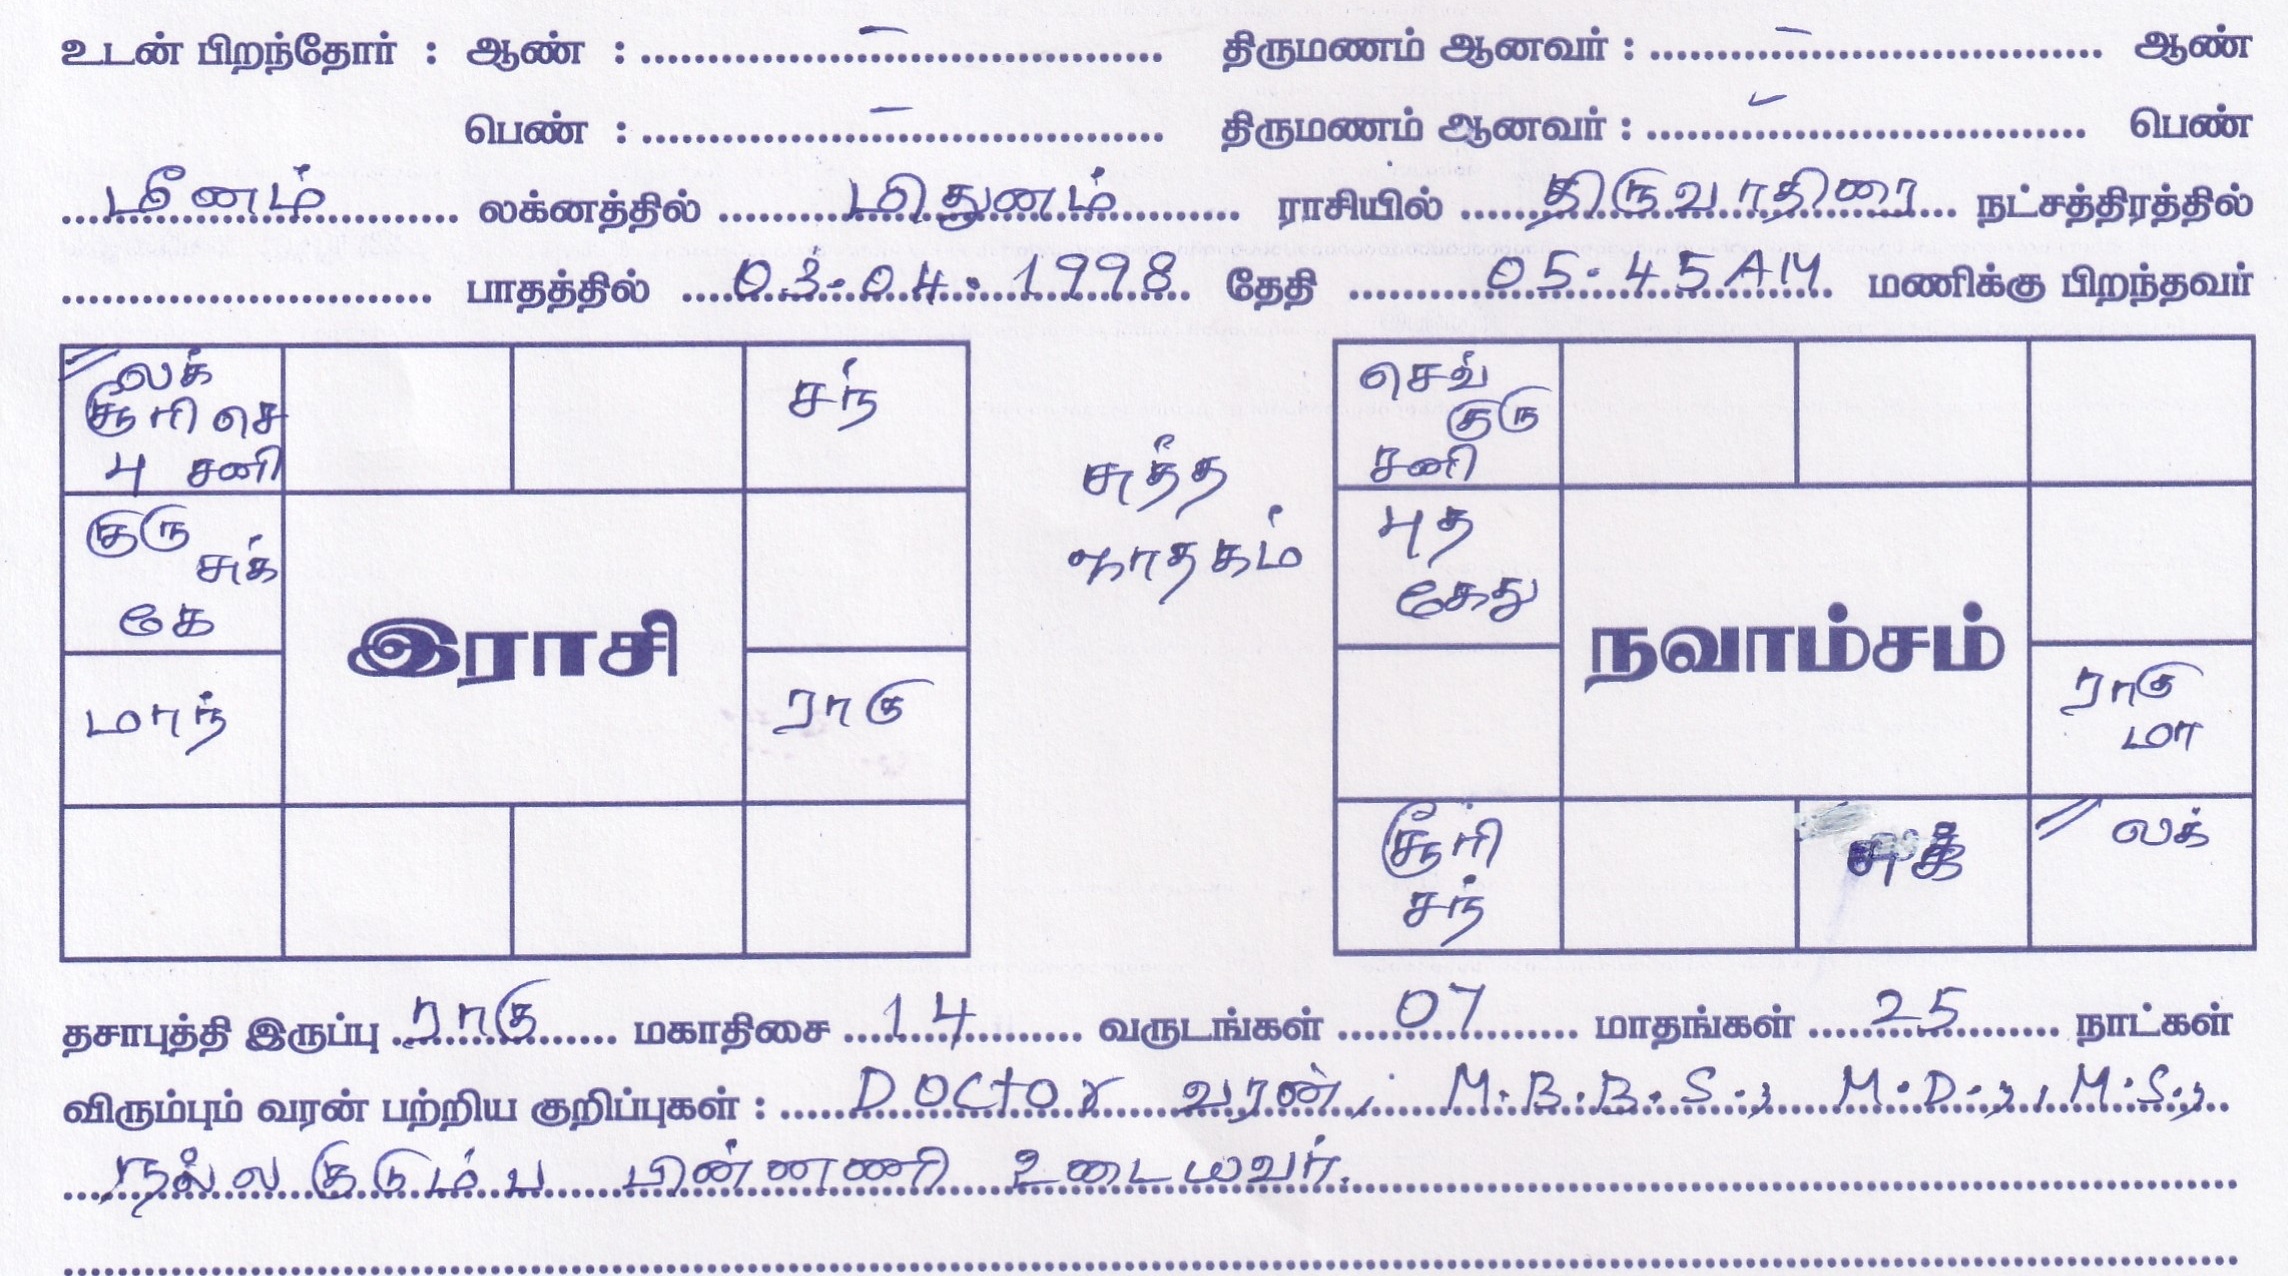 உடன் பிறந்தோர் : ஆண் : – திருமணம் ஆனவர் : – ஆண்
பெண் : – திருமணம் ஆனவர் : – பெண்
மீனம் லக்னத்தில் மிதுனம் ராசியில் திருவாதிரை நட்சத்திரத்தில்
பாதத்தில் 03-04-1998 தேதி 05-45AM மணிக்கு பிறந்தவர்
லக்
சூரி செ
பு சனி
சந்
குரு
சுக்
கே
இராசி
மாந்
ராகு
சுத்த
ஜாதகம்
செவ்
குரு
சனி
புத
கேது
நவாம்சம்
ராகு
மா
சூரி
சந்
சுக்
லக்
தசாபுத்தி இருப்பு ராகு மகாதிசை 14 வருடங்கள் 07 மாதங்கள் 25 நாட்கள்
விரும்பும் வரன் பற்றிய குறிப்புகள் : Doctor வரன், M.B.B.S., M.D., M.S.,
நல்ல குடும்ப பின்னணி உடையவர்.